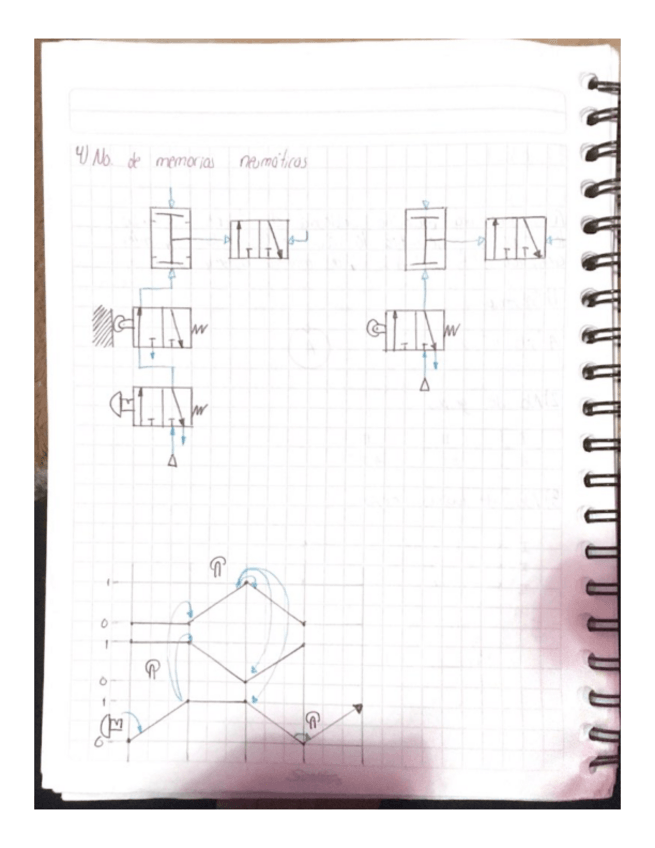 4) No. de memorias neumáticas
1
0
1
0
1
0